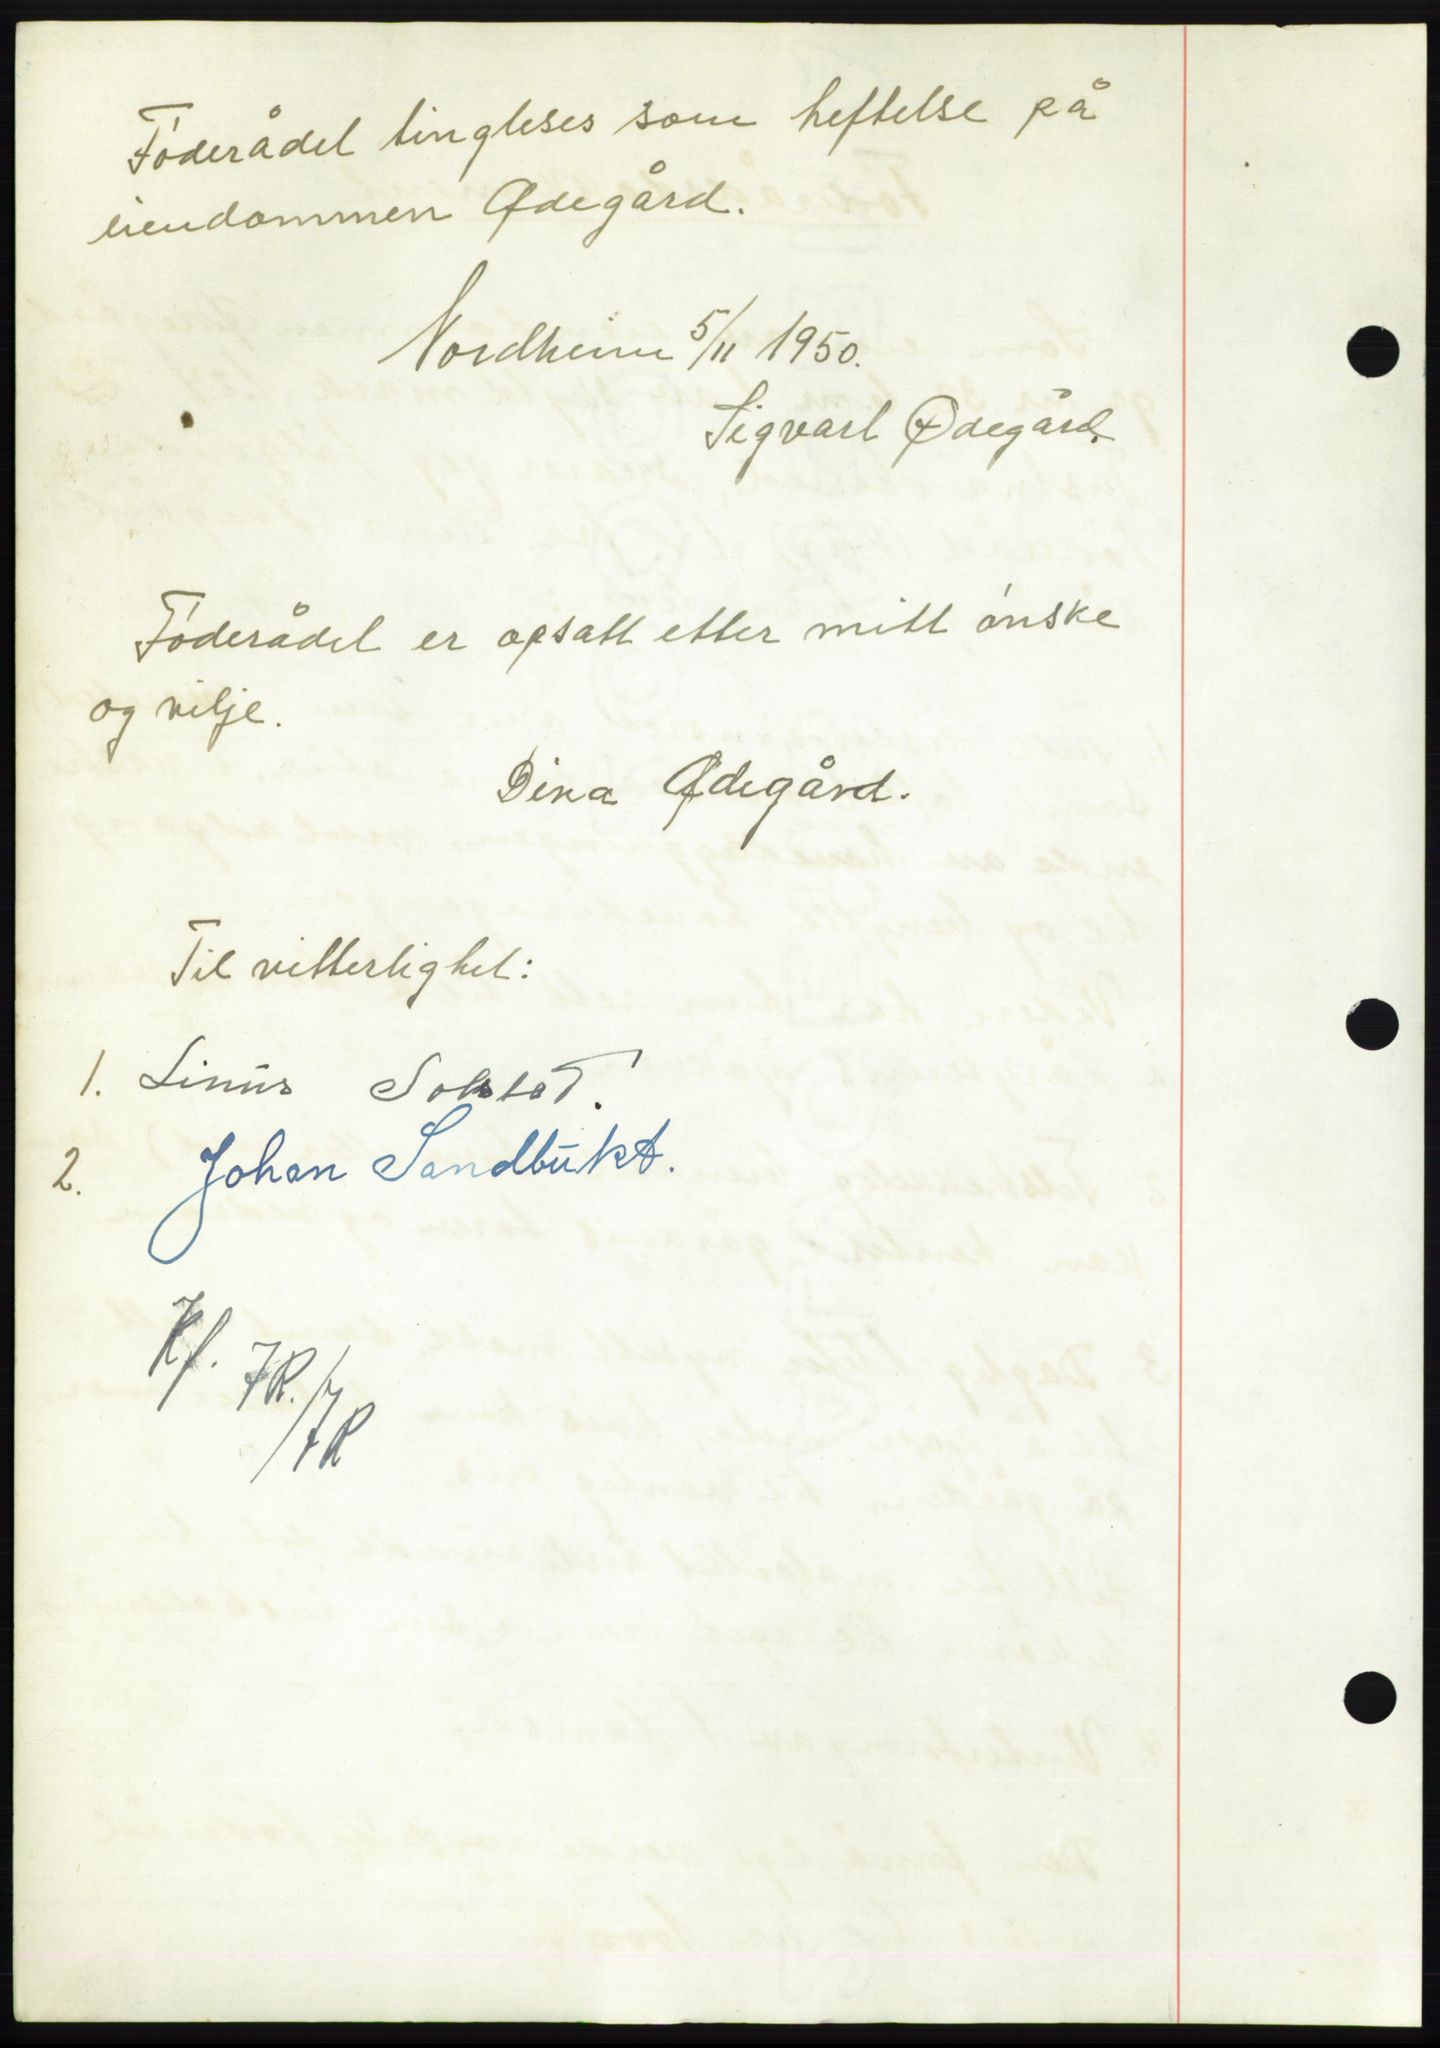 Föderådet tingleses som heftelse på
eiendommen Ødegård.
Nordheim 5/11 1950.
Sigvart Ødegård.
Föderådet er opsatt etter mitt önske
og vilje.
Dina Ødegård.
Til vitterlighet:
1. Linus Solstad.
2. Johan Sandbukt.
Kf. 7R./7R